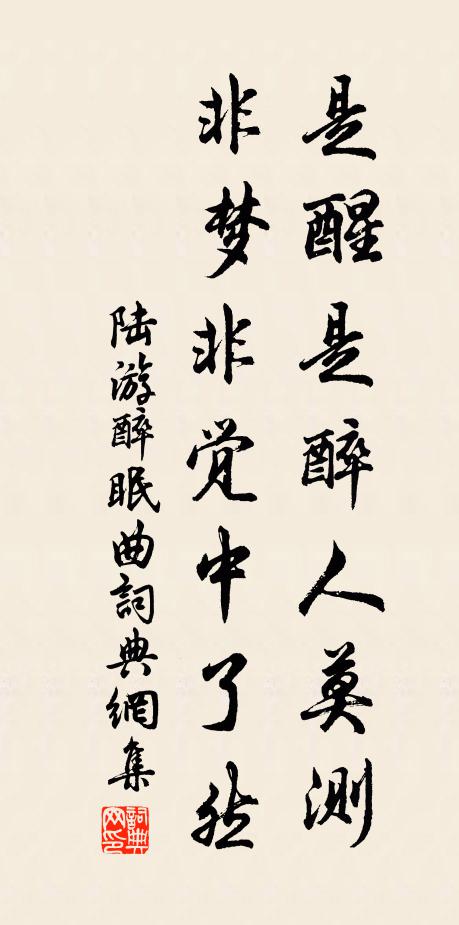 是醒是醉人莫測
非梦非觉中了然
陆游醉眠曲詞典網集
詞典网印